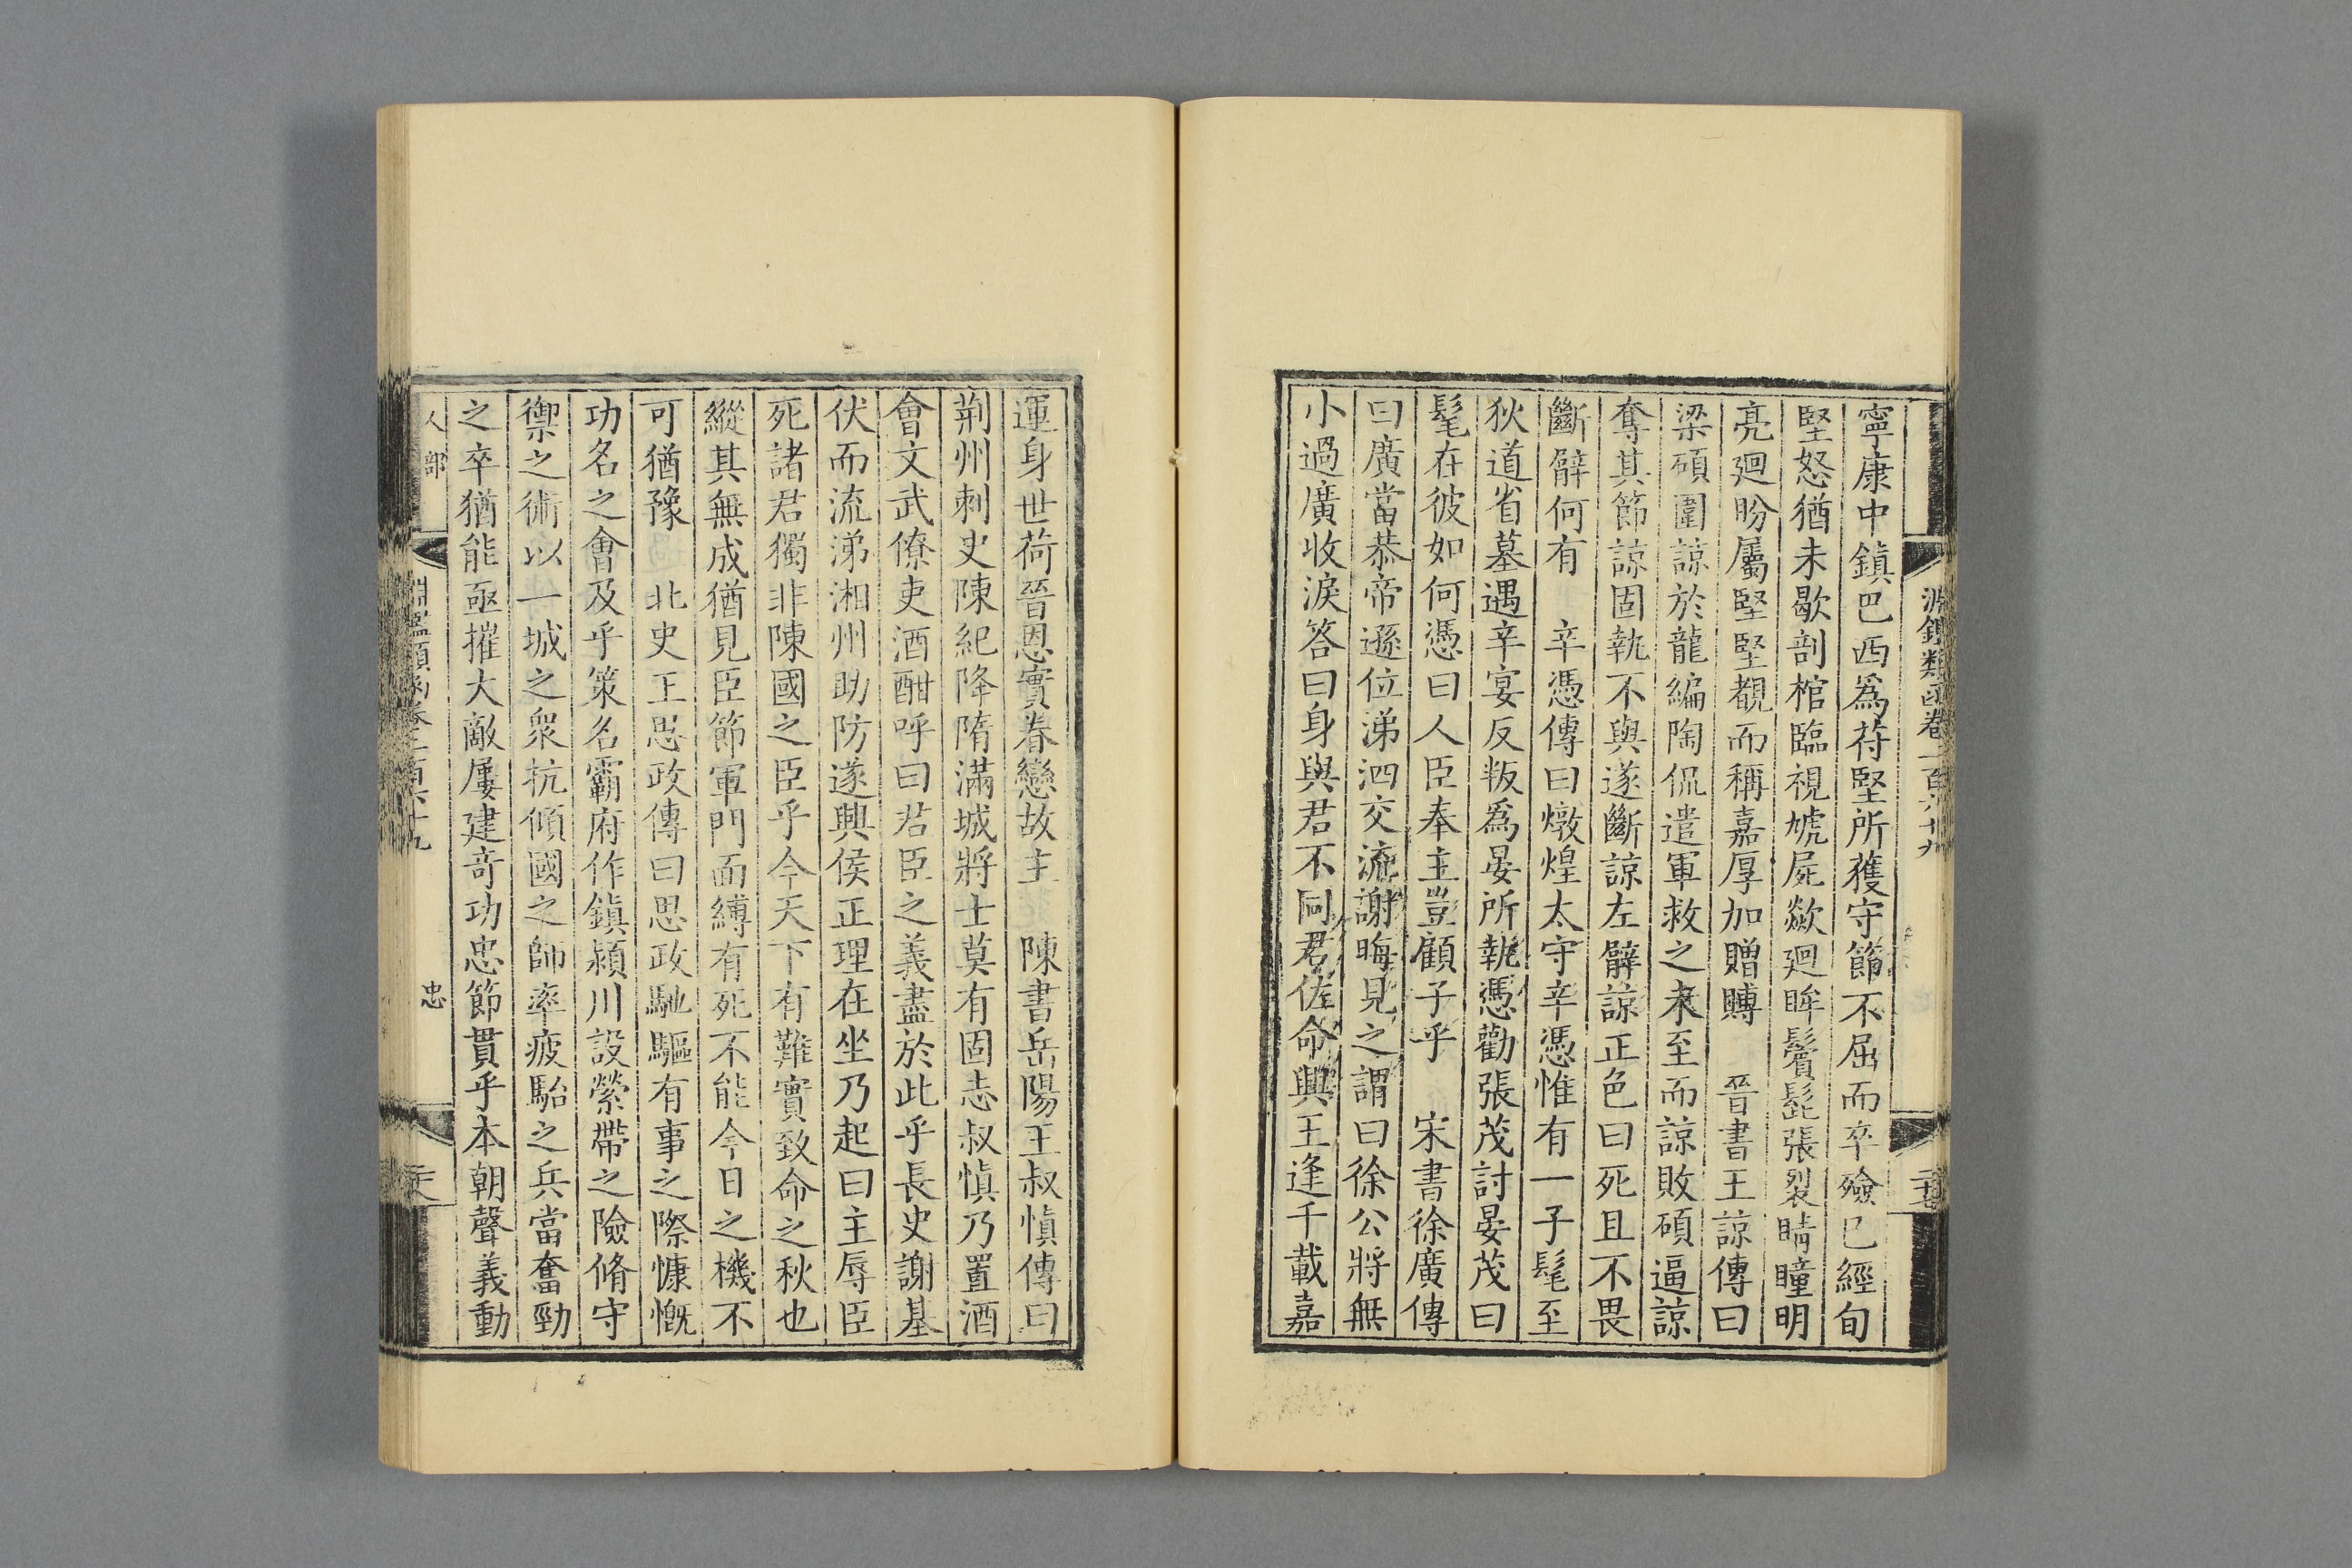 寧康中鎮巴西爲苻堅所獲守節不屈而卒殮已經旬
堅怒猶未歇剖棺臨視虓屍歘廻眸鬢髭張裂睛瞳明
亮廻盼屬堅堅覩而稱嘉厚加贈賻　晉書王諒傳曰
梁碩圍諒於龍編陶侃遣軍救之未至而諒敗碩逼諒
奪其節諒固執不與遂斷諒左臂諒正色曰死且不畏
斷臂何有　辛憑傳曰燉煌太守辛憑惟有一子髦至
狄道省墓遇辛宴反叛爲晏所執憑勸張茂討晏茂曰
髦在彼如何憑曰人臣奉主豈顧子乎　宋書徐廣傳
曰廣當恭帝遜位涕泗交流謝晦見之謂曰徐公將無
小過廣收淚答曰身與君不同君佐命興王逢千載嘉
運身世荷晉恩實眷戀故主　陳書岳陽王叔愼傳曰
荊州刺史陳紀降隋滿城將士莫有固志叔愼乃置酒
會文武僚吏酒酣呼曰君臣之義盡於此乎長史謝基
伏而流涕湘州助防遂興侯正理在坐乃起曰主辱臣
死諸君獨非陳國之臣乎今天下有難實致命之秋也
縱其無成猶見臣節軍門面縛有死不能今日之機不
可猶豫　北史王思政傳曰思政馳驅有事之際慷慨
功名之會及乎策名霸府作鎮潁川設縈帶之險脩守
禦之術以一城之衆抗傾國之師率疲駘之兵當奮勁
之卒猶能亟摧大敵屢建奇功忠節貫乎本朝聲義動
人部
忠